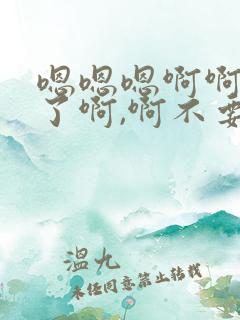 嗯嗯嗯啊啊
了啊,啊不要
温九
未经同意禁止转载